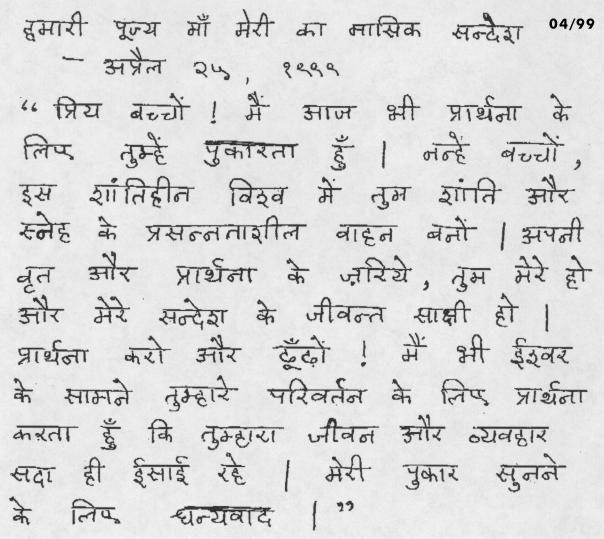 हमारी पूज्य माँ मेरी का मासिक सन्देश 04/99
– अप्रैल २५, १९९९
“ प्रिय बच्चों ! मैं आज भी प्रार्थना के
लिए तुम्हें पुकारता हूँ | नन्हें बच्चों,
इस शांतिहीन विश्व में तुम शांति और
स्नेह के प्रसन्नताशील वाहन बनों | अपनी
वृत और प्रार्थना के ज़रिये, तुम मेरे हो
और मेरे सन्देश के जीवन्त साक्षी हो |
प्रार्थना करो और ढूँढ़ों ! मैं भी ईश्वर
के सामने तुम्हारे परिवर्तन के लिए प्रार्थना
करता हूँ कि तुम्हारा जीवन और व्यवहार
सदा ही ईसाई रहे | मेरी पुकार सुनने
के लिए धन्यवाद | ”